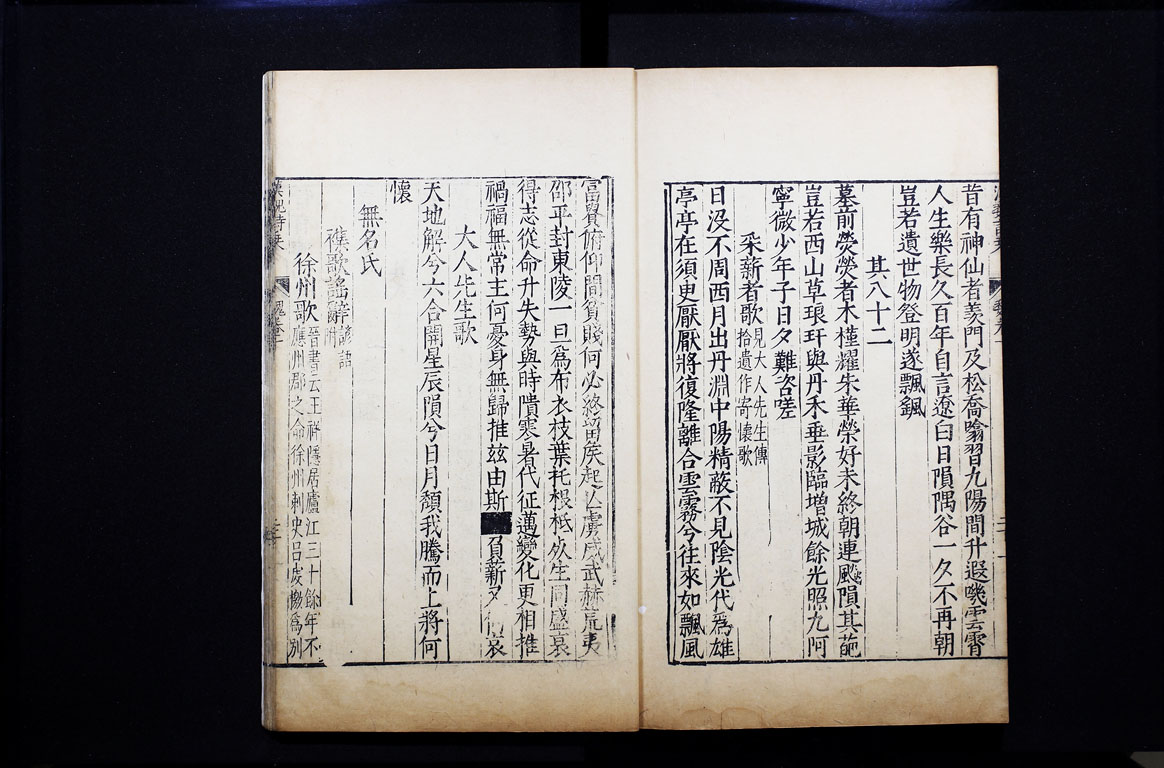 昔有神仙者羨門及松喬噏習九陽間升遐嘰雲霄
人生樂長久百年自言遼白日隕隅谷一夕不再朝
豈若遺世物登明遂飄颻
其八十二
墓前熒熒者木槿耀朱華榮好未終朝連飈隕其葩
豈若西山草琅玕與丹禾垂影臨增城餘光照九阿
寧微少年子日夕難咨嗟
采薪者歌
見大人先生傳
拾遺作寄懷歌
日没不周西月出丹淵中陽精蔽不見陰光代為雄
亭亭在須臾厭厭將復隆離合雲霧兮往來如飄風
富貴俯仰間貧賤何必終留侯起亡虜威武赫荒夷
邵平封東陵一旦為布衣枝葉托根柢死生同盛衰
得志從命升失勢與時隤寒暑代征邁變化更相推
禍福無常主何憂身無歸推兹由斯負薪又何哀
大人先生歌
天地解兮六合開星辰隕兮日月頽我騰而上將何
懷
無名氏
襍歌謡辭
諺語
附
徐州歌
晉書云王祥隱居廬江三十餘年不
應州郡之命徐州刺史呂虔檄為别
漢魏詩乗
魏卷